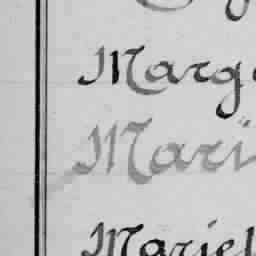 Marg
Mari
Mariel